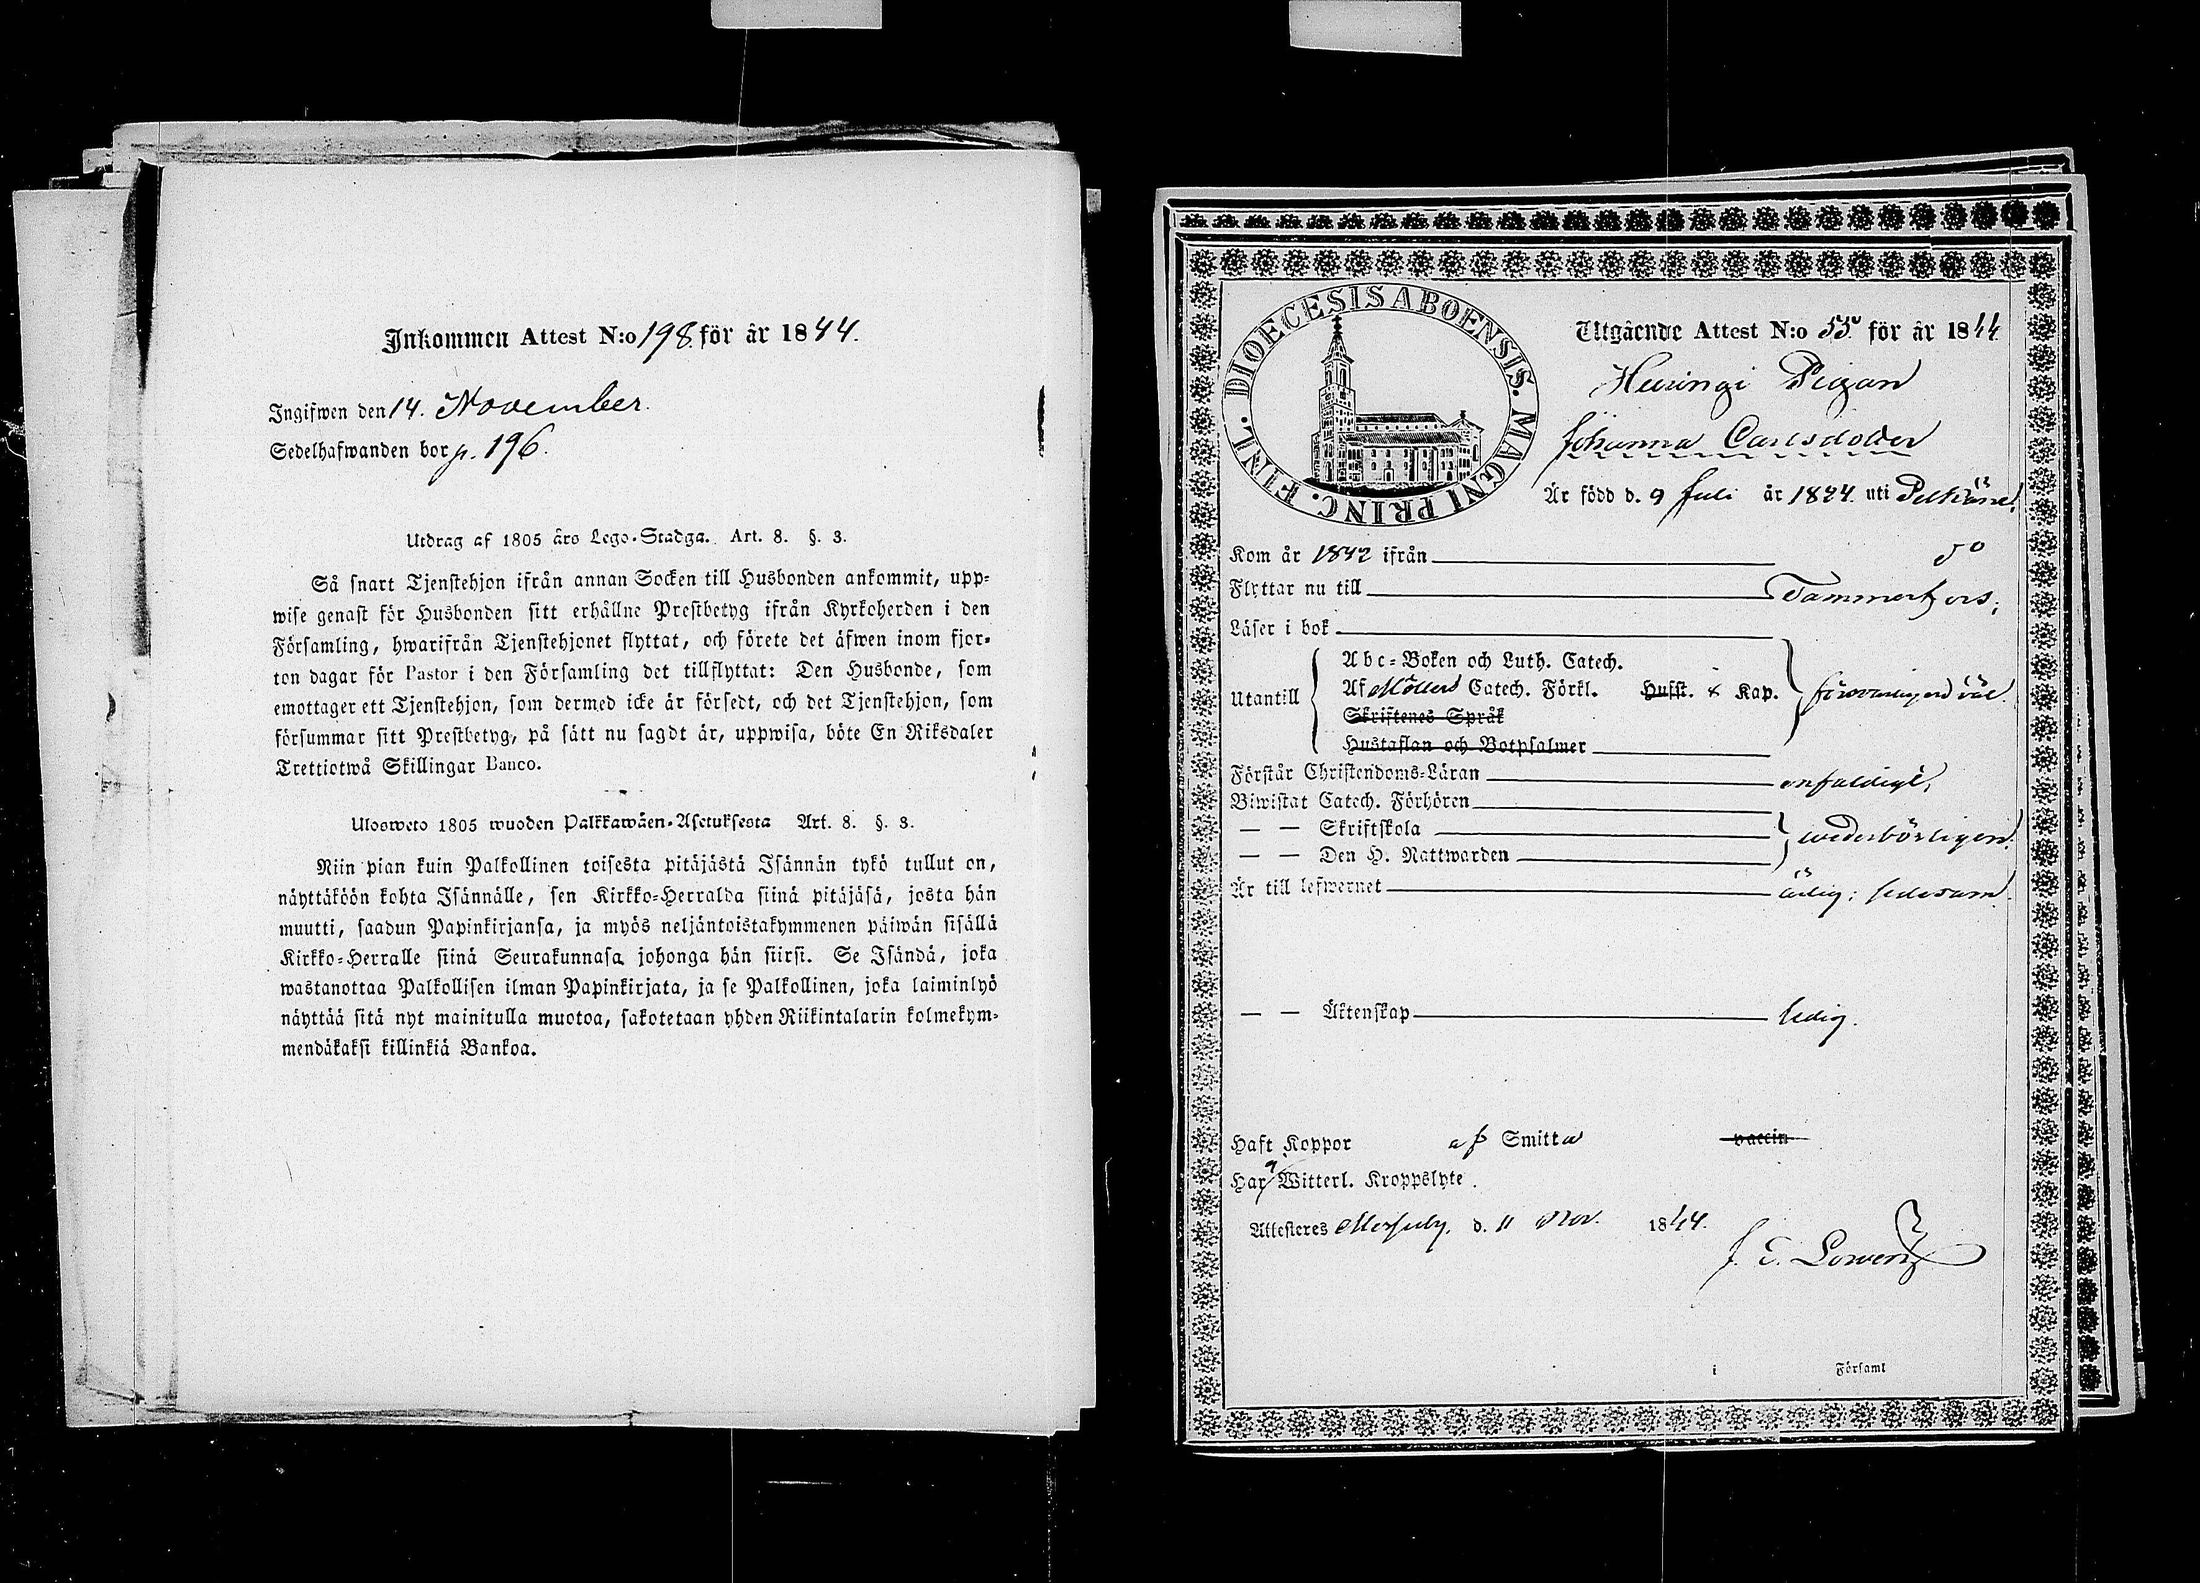 Inkommen Attest N:o 198 för år 1844.
Ingifwen den 14. November.
Sedelhafwanden bor p. 196.
Utdrag af 1805 års Lego-Stadga. Art. 8. §. 3.
Så snart Tjenstehjon ifrån annan Socken till Husbonden ankommit, upp-
wise genast för Husbonden sitt erhållne Prestbetyg ifrån Kyrkoherden i den
Församling, hwarifrån Tjenstehjonet flyttat, och förete det äfwen inom fjor-
ton dagar för Pastor i den Församling det tillflyttat: Den Husbonde, som
emottager ett Tjenstehjon, som dermed icke är försedt, och det Tjenstehjon, som
försummar sitt Prestbetyg, på sätt nu sagdt är, uppwisa, böte En Riksdaler
Trettiotwå Skillingar Banco.
Ulosweto 1805 wuoden Palkkawäen-Asetuksesta Art. 8. §. 3.
Niin pian kuin Palkollinen toisesta pitäjästä Isännän tykö tullut on,
näyttäköön kohta Isännälle, sen Kirkko-Herralda siinä pitäjäsä, josta hän
muutti, saadun Papinkirjansa, ja myös neljäntoistakymmenen päiwän sisällä
Kirkko-Herralle siinä Seurakunnasa johonga hän siirsi. Se Isändä, joka
wastanottaa Palkollisen ilman Papinkirjata, ja se Palkollinen, joka laiminlyö
näyttää sitä nyt mainitulla muotoa, sakotetaan yhden Riikintalarin kolmekym-
mendäkaksi killinkiä Bankoa.
DIOECESIS ABOENSIS. MAGNI PRINC. FINL.
Utgående Attest N:o 55. för år 1844
Huringi Pigan
Johanna Carlsdotter
Är född d. 9 Juli år 1824. uti Pelkäne.
Kom år 1842 ifrån do
Flyttar nu till Tammerfors;
Läser i bok
Utantill
Abc-Boken och Luth. Catech.
Af Möllers Catech. Förkl. Husst. Kap. försvarligen väl
Skriftenes Språk
Hustaflan och Botpsalmer
Förstår Christendoms-Läran enfaldigt;
Biwistat Catech. Förhören
— — Skriftskola wederbörligen.
— — Den H. Nattwarden
Är till lefwernet ärlig; sedesam.
— — Äktenskap ledig.
Haft Koppor af Smitta vaccin
Har Witterl. Kroppslyte.
Attesteres Messuby, d. 11 Nov. 1844.
i Församl